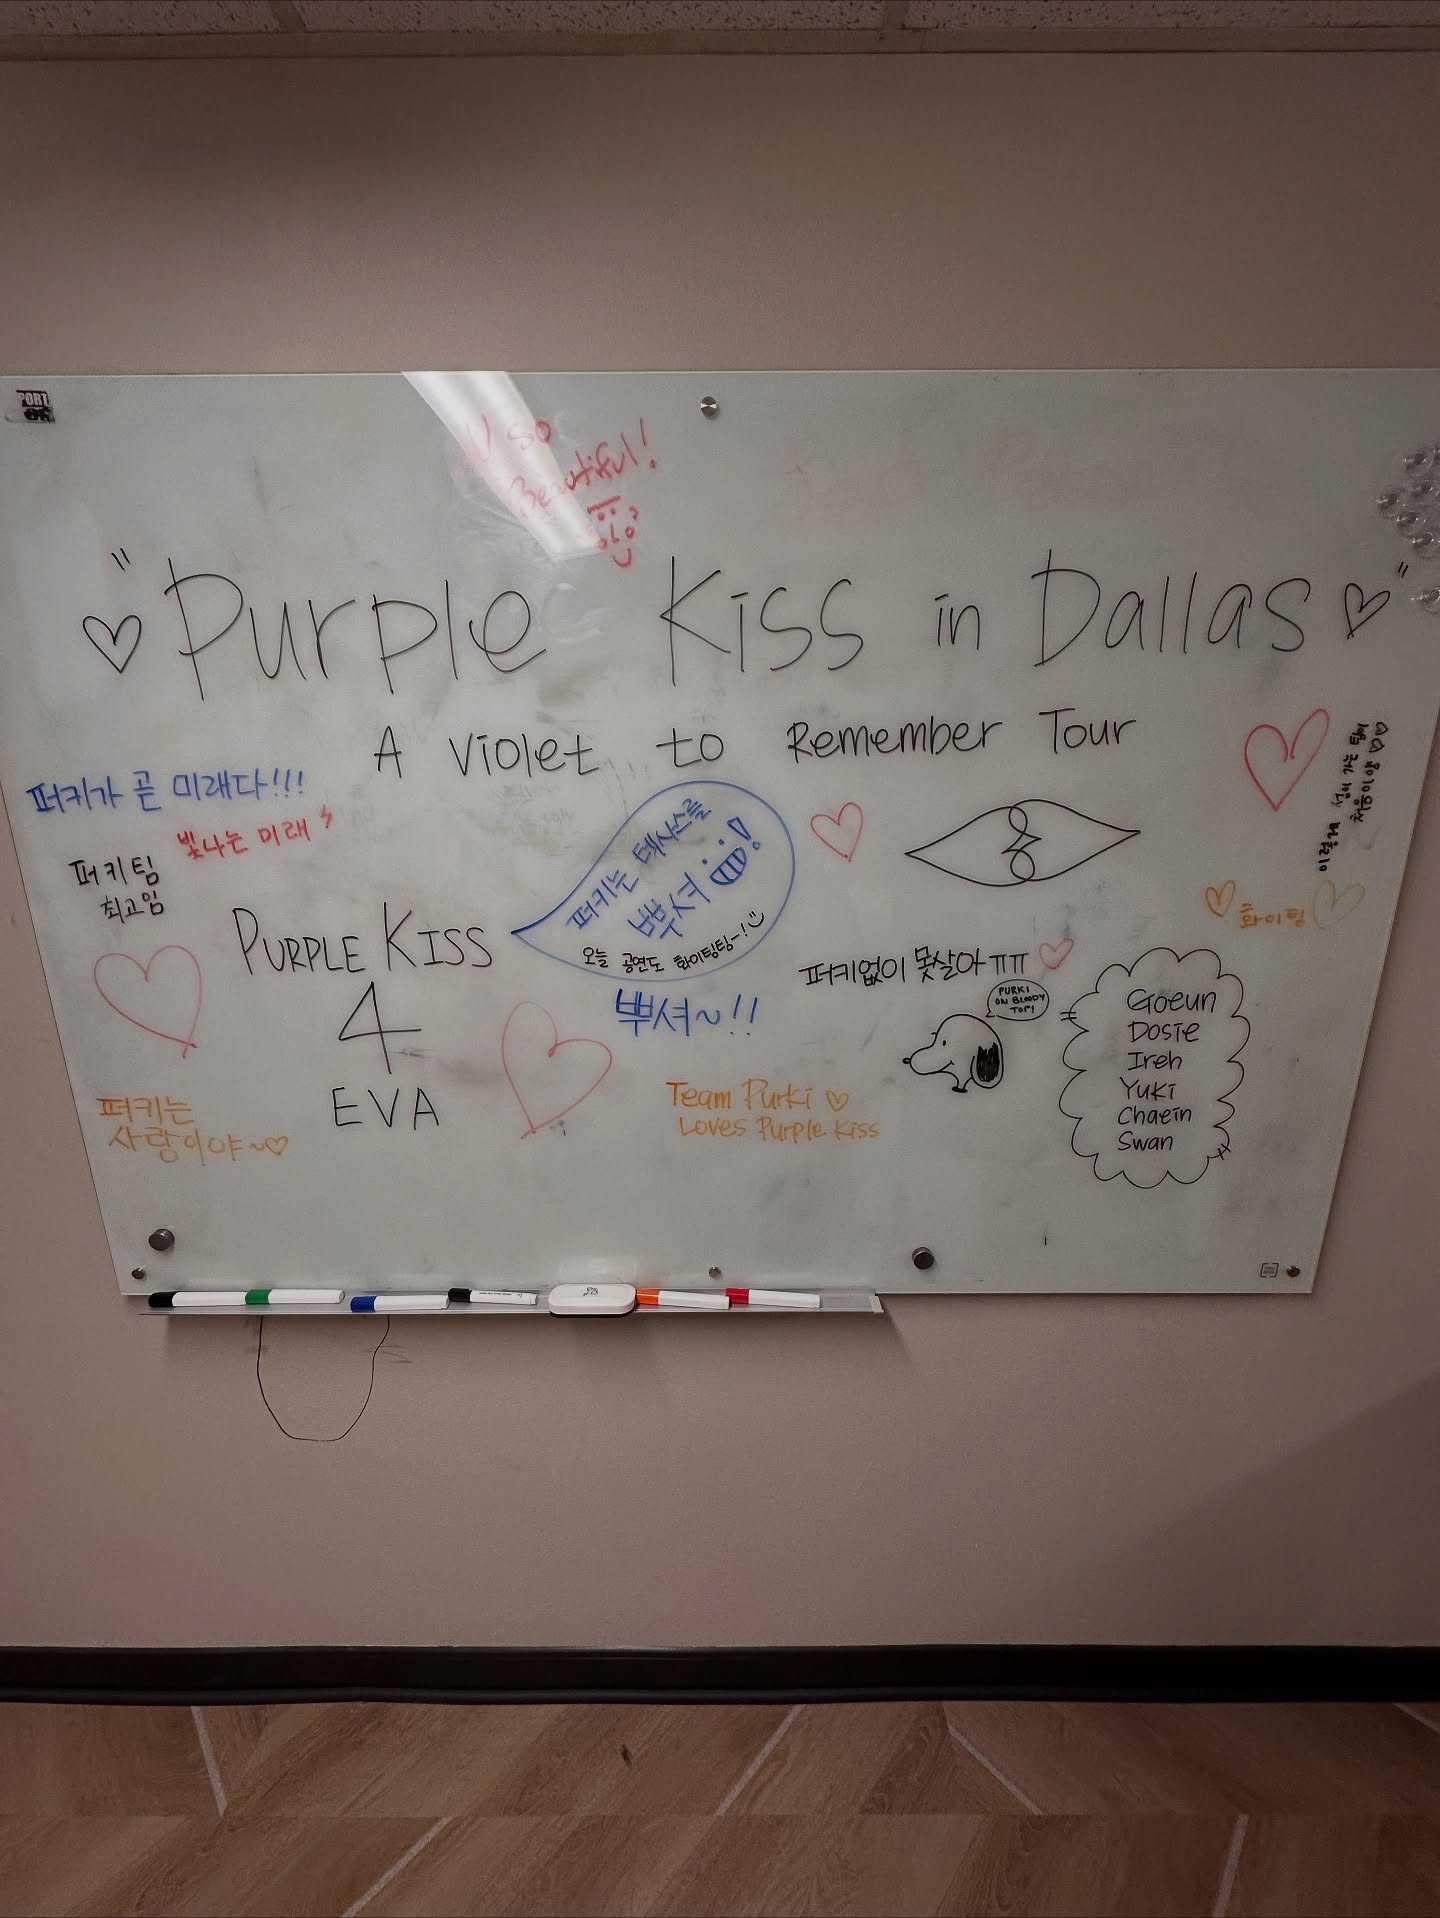 U so
Beautiful!
"Purple Kiss in Dallas"
A Violet to Remember Tour
퍼키가 곧 미래다!!!
빛나는 미래
퍼키팀
최고임
PURPLE KISS
4
EVA
퍼키는
사랑이야~
퍼키는 텍사스를
뿌셔!
오늘 공연도 화이팅팅~!
뿌셔~!!
Team Purki
Loves Purple Kiss
화이팅
퍼키없이 못살아ㅠㅠ
PURKI
ON BLOODY
TOP!
Goeun
Dosie
Ireh
Yuki
Chaein
Swan